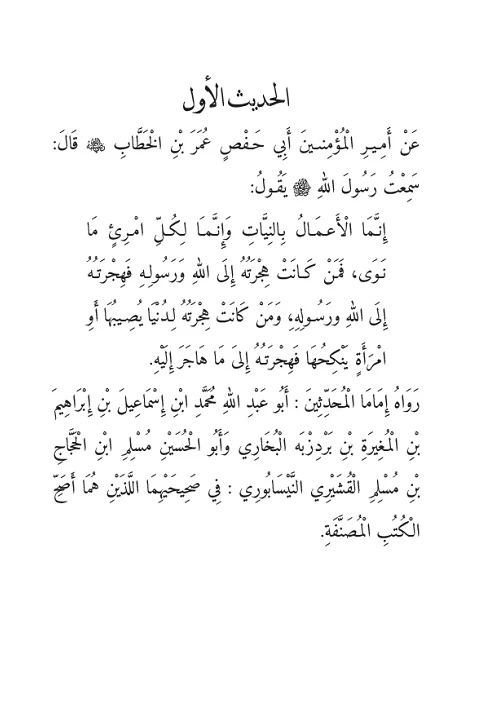 الحديث الأول
عَنْ أَمِيرِ الْمُؤْمِنينَ أَبِي حَفْصٍ عُمَرَ بْنِ الْخَطَّابِ ﵁ قَالَ:
سَمِعْتُ رَسُولَ اللهِ ﷺ يَقُولُ:
إِنَّمَا الْأَعمَالُ بِالنِيَّاتِ وَإِنَّمَا لِكُلِّ امْرِئٍ مَا
نَوَى، فَمَنْ كَانَتْ هِجْرَتُهُ إِلَى اللهِ وَرَسُولِهِ فَهِجْرَتُهُ
إِلَى اللهِ ورَسُولِهِ، وَمَنْ كَانَتْ هِجْرَتُهُ لِدُنْيَا يُصِيبُهَا أَوِ
امْرَأَةٍ يَنْكِحُهَا فَهِجْرَتُهُ إِلىَ مَا هَاجَرَ إِلَيْهِ.
رَوَاهُ إِمَامَا الْمُحَدِّثِينَ : أَبُو عَبْدِ اللهِ مُحَمَّدِ ابْنِ إِسْمَاعِيلَ بْنِ إِبْرَاهِيمَ
بْنِ الْمُغِيرَةِ بْنِ بَرْدِزْبَه الْبُخَارِي وَأَبُو الْحُسَيْنِ مُسْلِمِ ابْنِ الْحَجَّاجِ
بْنِ مُسْلِمِ الْقُشَيْرِي النَّيْسَابُورِي : فِي صَحِيحَيْهِمَا اللَّذَيْنِ هُمَا أَصَحِّ
الْكُتُبِ الْمُصَنَّفَةِ.